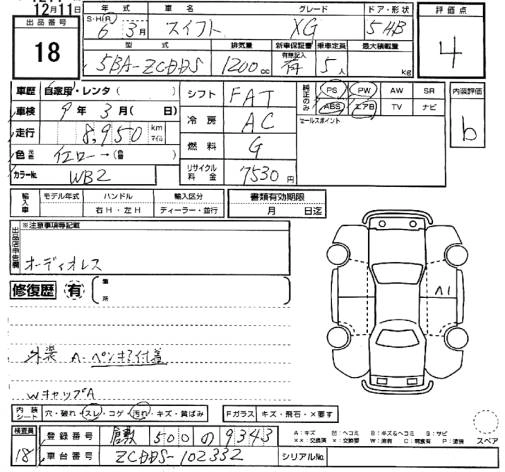 12月11日
年 式 グレード ドア・形状 評価点
出品番号 S・H(R) 6年 3月 スイフト XG 5HB
18 型 式 排気量 新車保証書 乗車定員 最大積載量 4
有無記入
5BA-ZCDDS 1200cc 有 5人 kg
車歴 自家用・レンタ( ) シフト FAT 純正のみ PS PW AW SR 内装評価
車検 9年 3月( 日) 冷房 AC ABS エアB TV ナビ b
走行 8,950 km マイル 燃料 G セールスポイント
色 元色 →(替 ) リサイクル料金 7530円
カラーNo. WB2
輸入車 モデル年式 ハンドル 輸入区分 書類有効期限
右H・左H ディーラー・並行 月 日迄
出品店申告欄 ※注意事項等記載
オーディオレス
修復歴 有 箇所
A1
外装 A・ペンキ?付着
WキャップA
内装シート 穴・破れ スレ・コゲ 汚れ・キズ・黄ばみ Fガラス キズ・飛石・X要す
A:キズ U:ヘコミ B:キズ&ヘコミ S:サビ
XX:交換済 X:交換要 W:波有 C:腐食有 P:塗装
スペア
検査員 18 登録番号 倉敷 500 の 9343
車台番号 ZCDDS-102332 シリアルNo.